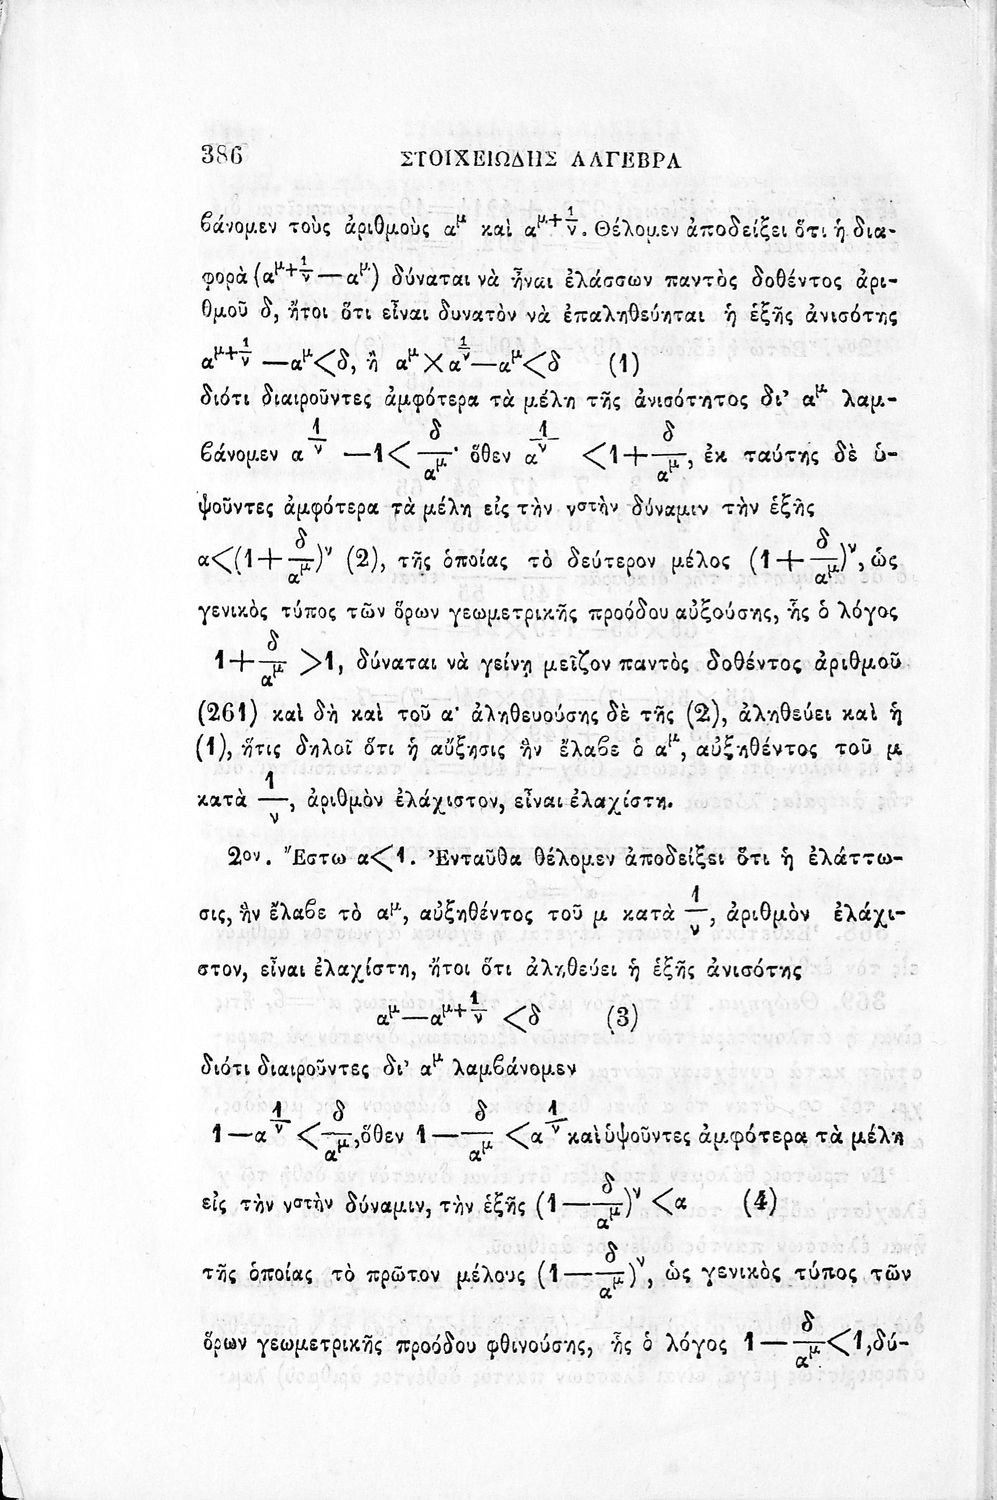 386 ΣΤΟΙΧΕΙΩΔΗΣ ΑΛΓΕΒΡΑ
βάνομεν τοὺς ἀριθμοὺς α^μ καὶ α^{μ+1/ν}. Θέλομεν ἀποδείξει ὅτι ἡ δια-
φορὰ (α^{μ+1/ν}—α^μ) δύναται νὰ ἦναι ἐλάσσων παντὸς δοθέντος ἀρι-
θμοῦ δ, ἤτοι ὅτι εἶναι δυνατὸν νὰ ἐπαληθεύηται ἡ ἑξῆς ἀνισότης
α^{μ+1/ν} —α^μ<δ, ἢ α^μ×α^{1/ν}—α^μ<δ (1)
διότι διαιροῦντες ἀμφότερα τὰ μέλη τῆς ἀνισότητος δι’ α^μ λαμ-
βάνομεν α^{1/ν} —1< δ/α^μ· ὅθεν α^{1/ν} <1+ δ/α^μ, ἐκ ταύτης δὲ ὑ-
ψοῦντες ἀμφότερα τὰ μέλη εἰς τὴν νστὴν δύναμιν τὴν ἑξῆς
α<(1+ δ/α^μ)^ν (2), τῆς ὁποίας τὸ δεύτερον μέλος (1+ δ/α^μ)^ν, ὡς
γενικὸς τύπος τῶν ὅρων γεωμετρικῆς προόδου αὐξούσης, ἧς ὁ λόγος
1+ δ/α^μ >1, δύναται νὰ γείνῃ μεῖζον παντὸς δοθέντος ἀριθμοῦ
(261) καὶ δὴ καὶ τοῦ α· ἀληθευούσης δὲ τῆς (2), ἀληθεύει καὶ ἡ
(1), ἥτις δηλοῖ ὅτι ἡ αὔξησις ἣν ἔλαβε ὁ α^μ, αὐξηθέντος τοῦ μ
κατὰ 1/ν, ἀριθμὸν ἐλάχιστον, εἶναι ἐλαχίστη.
2ον. Ἔστω α<1. Ἐνταῦθα θέλομεν ἀποδείξει ὅτι ἡ ἐλάττω-
σις, ἣν ἔλαβε τὸ α^μ, αὐξηθέντος τοῦ μ κατὰ 1/ν, ἀριθμὸν ἐλάχι-
στον, εἶναι ἐλαχίστη, ἤτοι ὅτι ἀληθεύει ἡ ἑξῆς ἀνισότης
α^μ—α^{μ+1/ν} <δ (3)
διότι διαιροῦντες δι’ α^μ λαμβάνομεν
1—α^{1/ν} < δ/α^μ, ὅθεν 1— δ/α^μ <α^{1/ν} καὶ ὑψοῦντες ἀμφότερα τὰ μέλη
εἰς τὴν νστὴν δύναμιν, τὴν ἑξῆς (1— δ/α^μ)^ν <α (4)
τῆς ὁποίας τὸ πρῶτον μέλους (1— δ/α^μ)^ν, ὡς γενικὸς τύπος τῶν
ὅρων γεωμετρικῆς προόδου φθινούσης, ἧς ὁ λόγος 1— δ/α^μ<1, δύ-